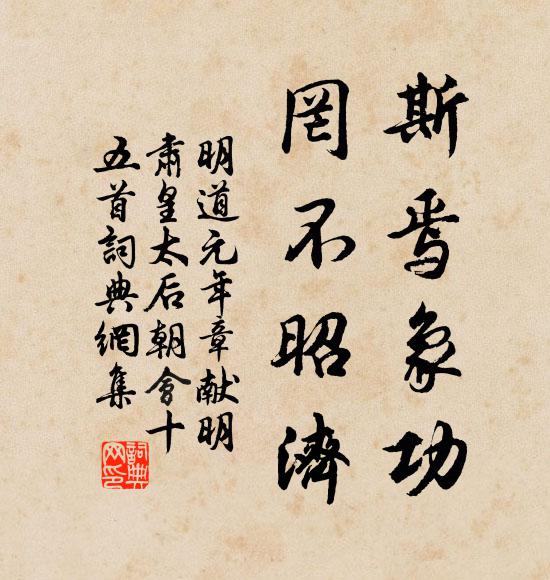 斯焉象功
罔不昭濟
明道元年章献明
肅皇太后朝會十
五首詞典網集
詞典
网印